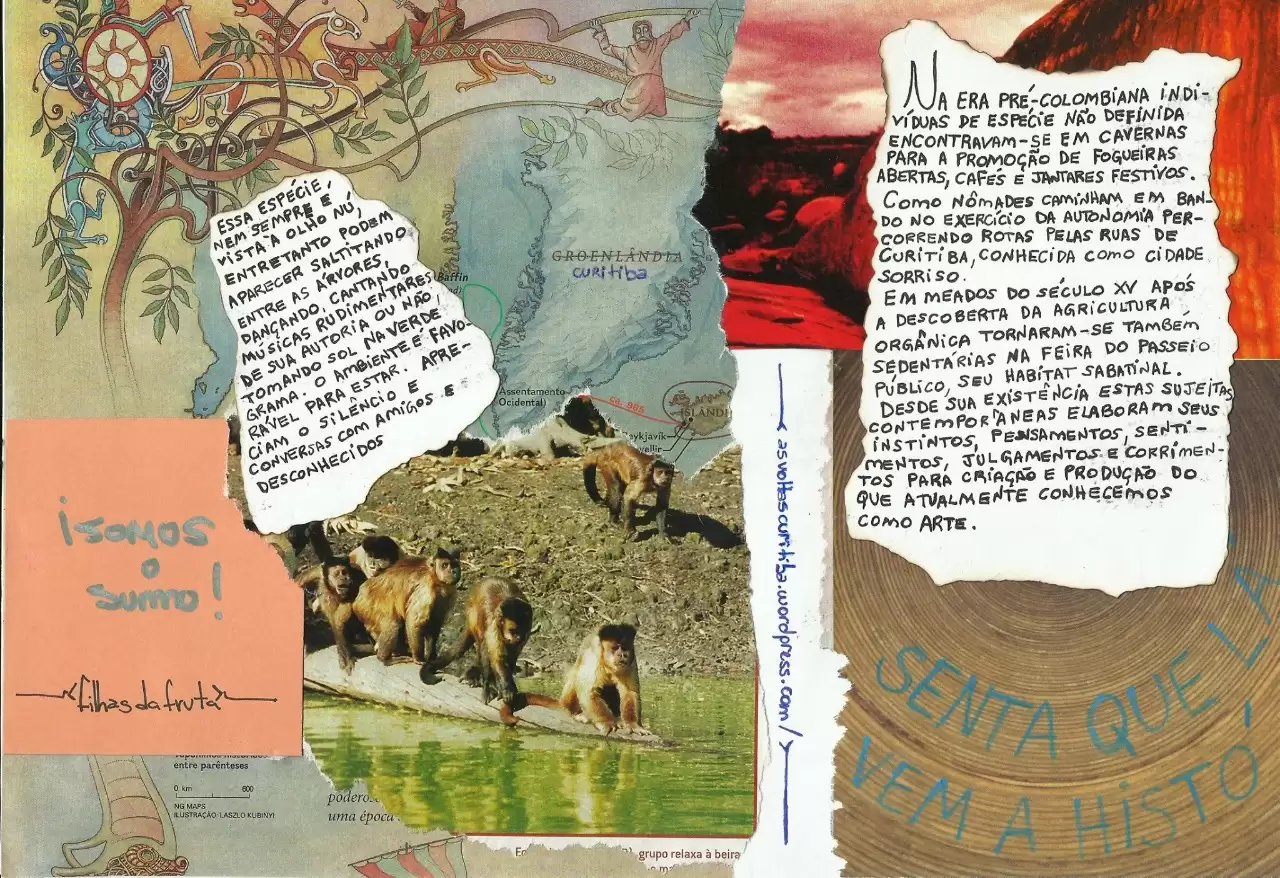 ESSA ESPÉCIE,
NEM SEMPRE É
VISTA A OLHO NÚ,
ENTRETANTO PODEM
APARECER SALTITANDO
ENTRE AS ÁRVORES,
DANÇANDO, CANTANDO
MÚSICAS RUDIMENTARES
DE SUA AUTORIA OU NÃO,
TOMANDO SOL NA VERDE
GRAMA. O AMBIENTE É FAVO-
RÁVEL PARA ESTAR. APRE-
CIAM O SILÊNCIO E
CONVERSAS COM AMIGOS E
DESCONHECIDOS
Baffin
GROENLÂNDIA
CURITIBA
Assentamento
Ocidental)
ca. 985
ISLÂNDI
Reykjavík
¡SOMOS
O
SUMO!
filhas da fruta
entre parênteses
0 km 600
NG MAPS
ILUSTRAÇÃO: LASZLO KUBINYI
uma época
grupo relaxa à beira
asvoltascuritiba.wordpress.com/
NA ERA PRÉ-COLOMBIANA INDI-
VÍDUAS DE ESPÉCIE NÃO DEFINIDA
ENCONTRAVAM-SE EM CAVERNAS
PARA A PROMOÇÃO DE FOGUEIRAS
ABERTAS, CAFÉS E JANTARES FESTIVOS.
COMO NÔMADES CAMINHAM EM BAN-
DO NO EXERCÍCIO DA AUTONOMIA PER-
CORRENDO ROTAS PELAS RUAS DE
CURITIBA, CONHECIDA COMO CIDADE
SORRISO.
EM MEADOS DO SÉCULO XV APÓS
A DESCOBERTA DA AGRICULTURA
ORGÂNICA TORNARAM-SE TAMBÉM
SEDENTÁRIAS NA FEIRA DO PASSEIO
PÚBLICO, SEU HÁBITAT SABATINAL.
DESDE SUA EXISTÊNCIA ESTAS SUJEITAS
CONTEMPORÂNEAS ELABORAM SEUS
INSTINTOS, PENSAMENTOS, SENTI-
MENTOS, JULGAMENTOS E CORRIMEN-
TOS PARA CRIAÇÃO E PRODUÇÃO DO
QUE ATUALMENTE CONHECEMOS
COMO ARTE.
SENTA QUE LÁ
VEM A HISTÓ